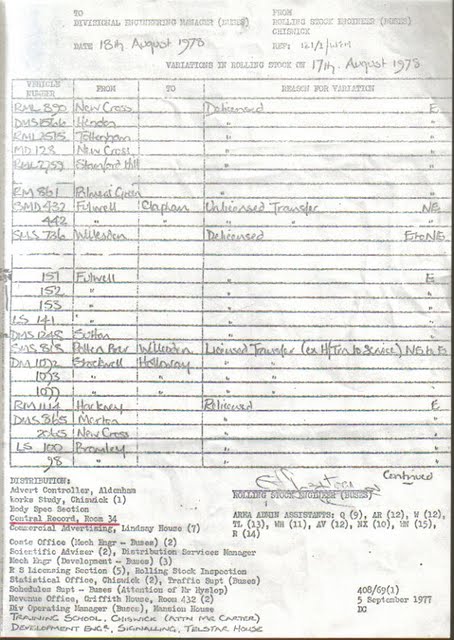 TO FROM
DIVISIONAL ENGINEERING MANAGER (BUSES) ROLLING STOCK ENGINEER (BUSES)
CHISWICK
DATE 18th August 1978 REF: 121/1/
VARIATIONS IN ROLLING STOCK ON 17th. August 1978
VEHICLE NUMBER FROM TO REASON FOR VARIATION
RML 890 New Cross Delicensed E
DMS1566 Hendon " "
RML2515 Tottenham " "
MD 128 New Cross " "
Stamford Hill " "
RM 861 Palmers Green " "
SMD 432 Fulwell Clapham Unlicensed Transfer NE
442 " " " " "
SMS 736 Willesden Delicensed E to NE
151 Fulwell " E
152 " " "
153 " " "
LS 141 " " "
DMS1248 Sutton " "
SMS 818 Potters Bar Willesden Licensed Transfer (ex H/Tra to Service) NE to E
DM Stockwell Holloway " "
1098 " " " "
1099 " " " "
RM 1114 Hackney Relicensed E
DMS 865 Merton " "
2065 New Cross " "
LS 100 Bromley " "
98 " " "
Continued
DISTRIBUTION: ROLLING STOCK ENGINEER (BUSES)
Advert Controller, Aldenham
Works Study, Chiswick (1)
Body Spec Section
Central Record, Room 34
Commercial Advertising, Lindsay House (7)
AREA ADMIN ASSISTANTS: Q (9), AR (12), W (12),
TL (13), WH (11), AV (12), NX (10), HN (15),
R (14)
Costs Office (Mech Engr - Buses) (2)
Scientific Adviser (2), Distribution Services Manager
Mech Engr (Development - Buses) (3)
R S Licensing Section (5), Rolling Stock Inspection
Statistical Office, Chiswick (2), Traffic Supt (Buses)
Schedules Supt - Buses (Attention of Mr Hyslop) 408/69(1)
Revenue Office, Griffith House, Room 432 (2) 5 September 1977
Div Operating Manager (Buses), Mansion House DC
TRAINING SCHOOL, CHISWICK (ATTN MR CARTER)
DEVELOPMENT ENGR, SIGNALLING, TELSTAR HOUSE